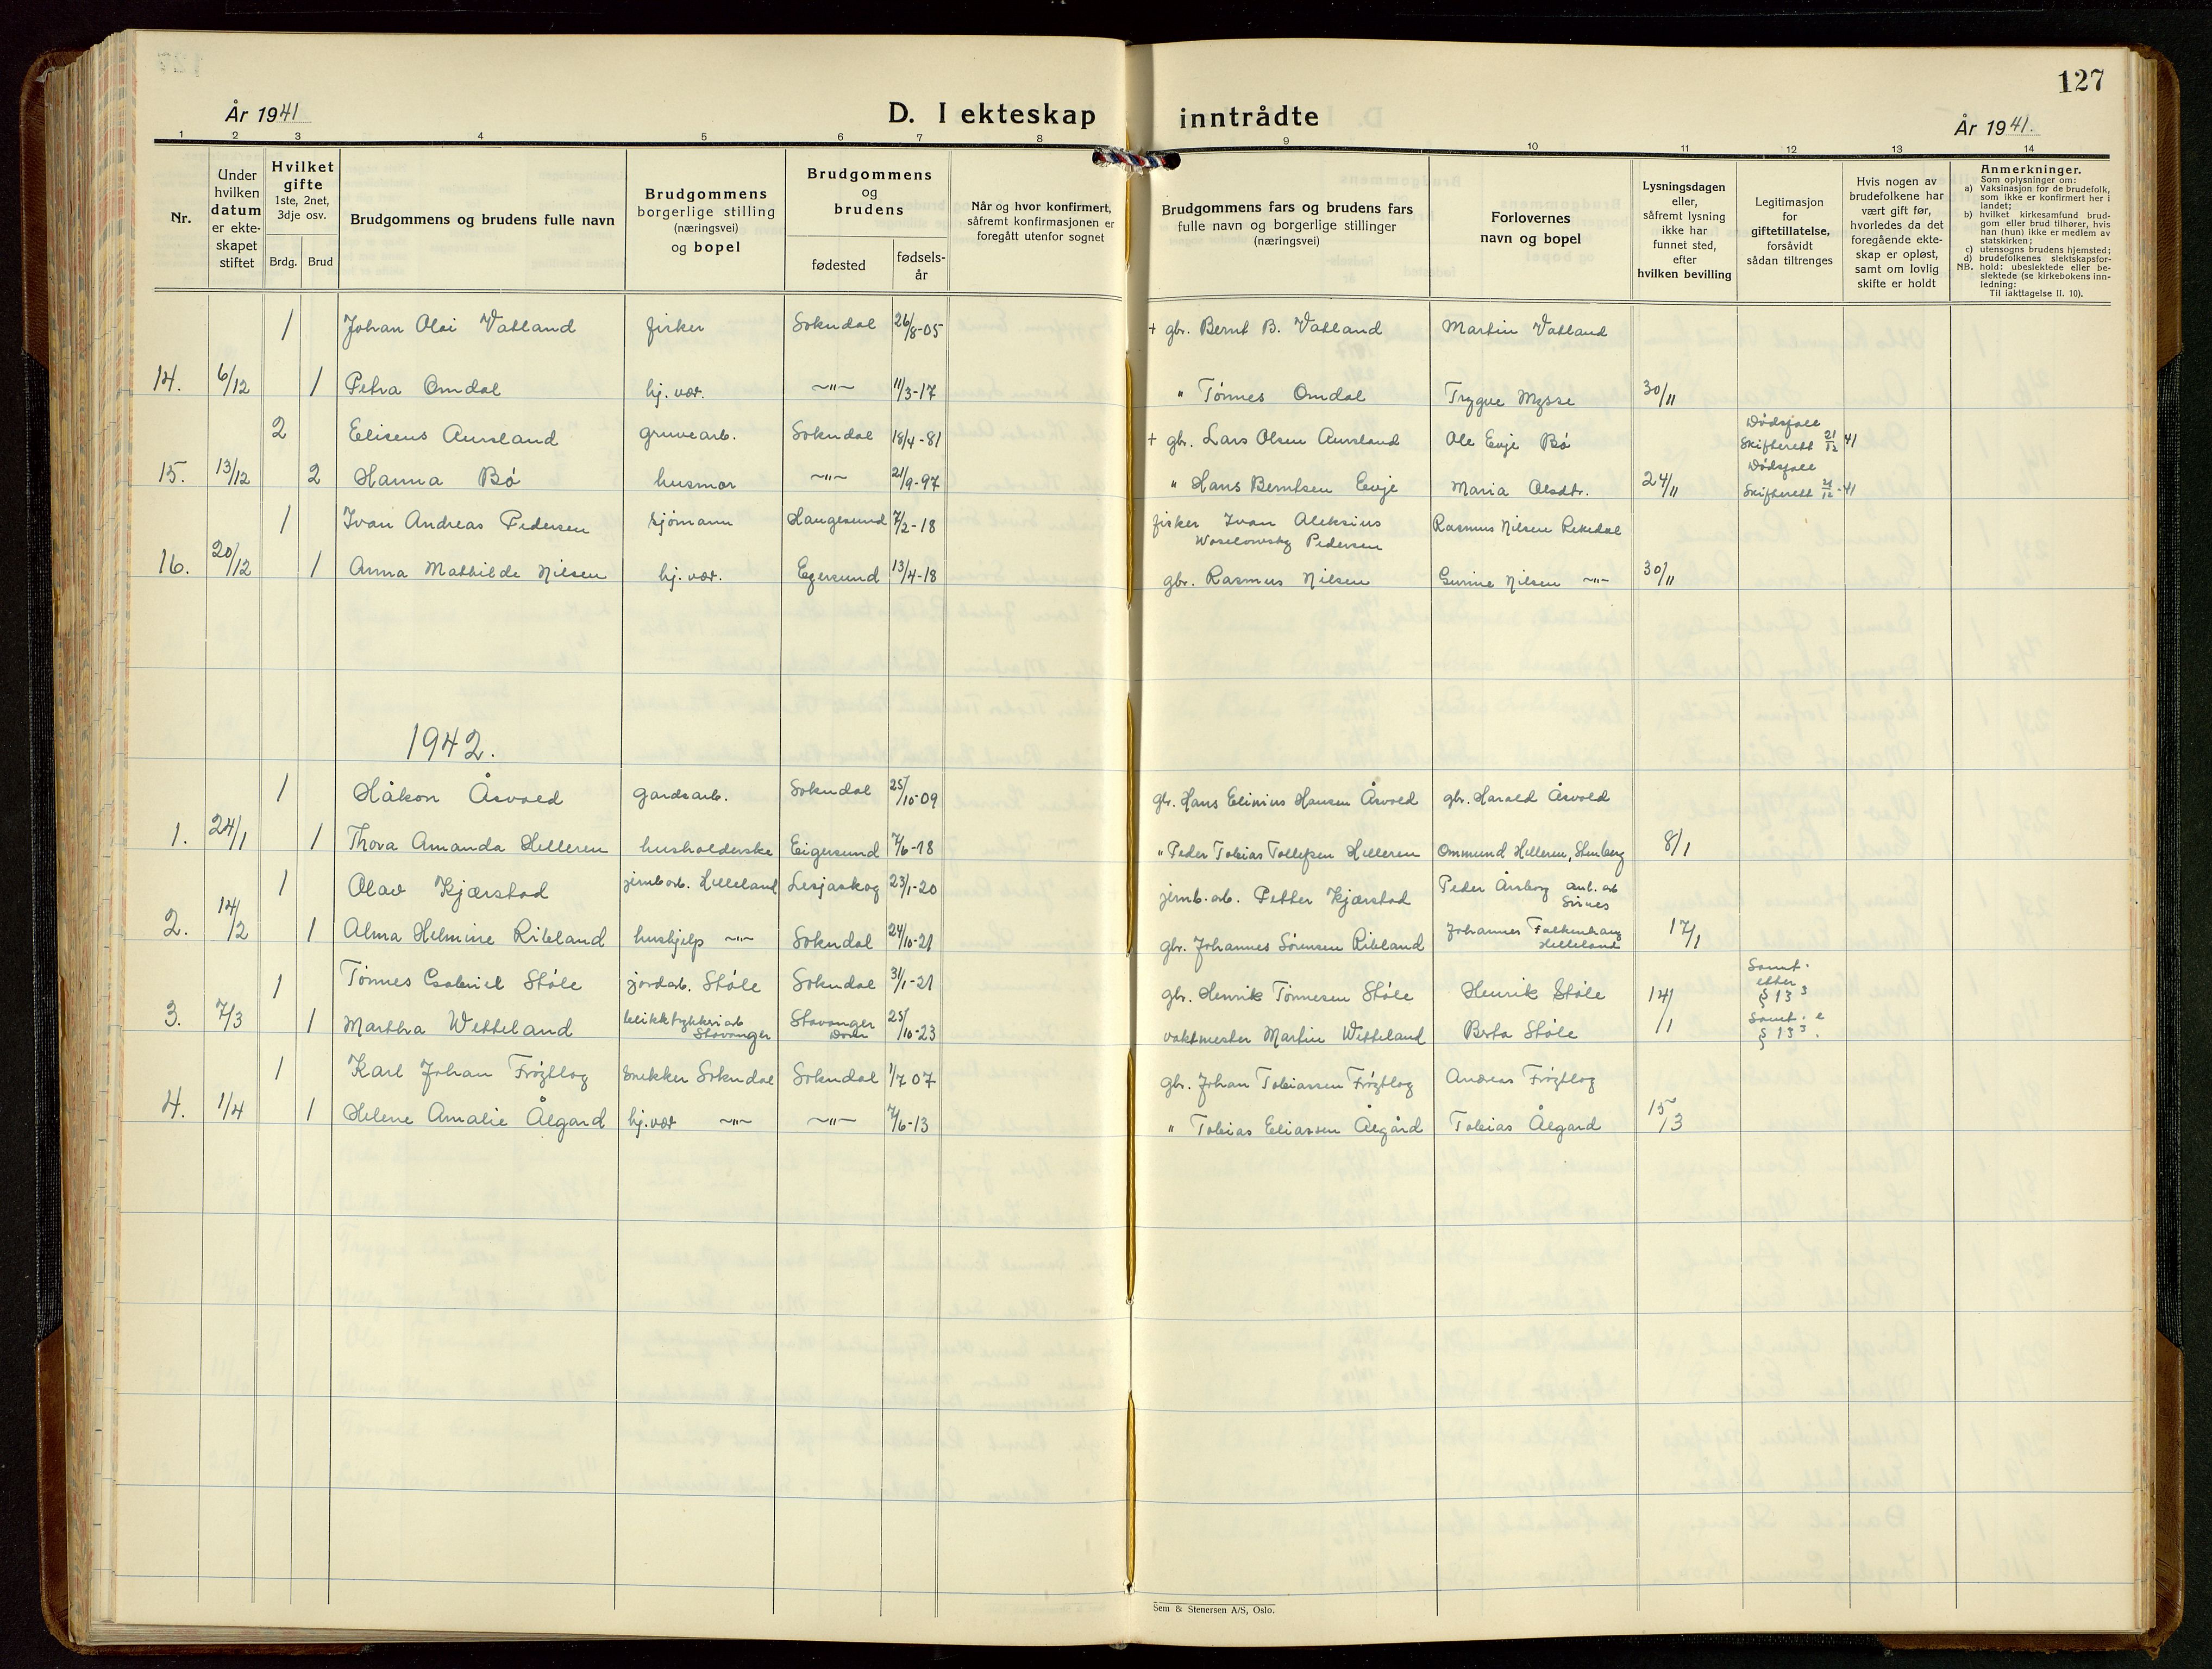 127
År 1941
D. I ekteskap inntrådte
År 1941.
1 2 3 4 5 6 7 8 9 10 11 12 13 14
Nr.
Under hvilken datum er ekteskapet stiftet
Hvilket gifte 1ste, 2net, 3dje osv.
Brdg. Brud
Brudgommens og brudens fulle navn
Brudgommens borgerlige stilling (næringsvei) og bopel
Brudgommens og brudens
fødested
fødselsår
Når og hvor konfirmert, såfremt konfirmasjonen er foregått utenfor sognet
Brudgommens fars og brudens fars fulle navn og borgerlige stillinger (næringsvei)
Forlovernes navn og bopel
Lysningsdagen eller, såfremt lysning ikke har funnet sted, efter hvilken bevilling
Legitimasjon for giftetillatelse, forsåvidt sådan tiltrenges
Hvis nogen av brudefolkene har vært gift før, hvorledes da det foregående ekteskap er opløst, samt om lovlig skifte er holdt
Anmerkninger.
Som oplysninger om:
a) Vaksinasjon for de brudefolk, som ikke er konfirmert her i landet;
b) hvilket kirkesamfund brudgom eller brud tilhører, hvis han (hun) ikke er medlem av statskirken;
c) utensogns brudens hjemsted;
d) brudefolkenes slektskapsforhold: ubeslektede eller beslektede (se kirkebokens innledning:
NB. Til iakttagelse II. 10).
1 Johan Olai Vatland fisker Sokndal 26/8-05 + gbr. Bernt B. Vatland Martin Vatland
14. 6/12 1 Petra Omdal hj. vær. -"- 11/3-17 " Tønnes Omdal Trygve Mysse 30/11
2 Eliseus Aursland gruvearb. Sokndal 18/4-81 + gbr. Lars Olsen Aursland Ole Evje Bø Dødsfall Skifterett 21/12 41
15. 13/12 2 Hanna Bø husmor -"- 21/9-97 " Hans Berntsen Evje Maria Olsdtr. 24/11 Dødsfall Skifterett 21/12-41
1 Ivan Andreas Pedersen sjømann Haugesund 7/2-18 fisker Ivan Aleksius Woselowsky Pedersen Rasmus Nilsen Rekedal
16. 20/12 1 Anna Mathilde Nilsen hj. vær. Egersund 13/4-18 gbr. Rasmus Nilsen Gurine Nilsen -"- 30/11
1942.
1 Håkon Åsvold gardsarb. Sokndal 25/10-09 gbr. Hans Elinius Hansen Åsvold gbr. Harald Åsvold
1. 24/1 1 Thora Amanda Helleren husholderske Eigersund 7/6-18 " Peder Tobias Tollefsen Helleren Ommund Helleren, Stenberg 8/1
1 Olav Kjærstad jernb.arb. Helleland Lesjaskog 23/1-20 jernb.arb. Petter Kjærstad Peder Årsberg anl. arb Sirnes
2. 14/2 1 Alma Helmine Ribland hushjelp -"- Sokndal 24/10-21 gbr. Johannes Sørensen Ribland Johannes Falkenhaug Helleland 17/1
1 Tønnes Gabriel Støle jordarb. Støle Sokndal 31/1-21 gbr. Henrik Tønnesen Støle Henrik Støle 14/1 Samt. etter § 13 3
3. 7/3 1 Martha Wetteland blikktrykkeriarb Stavanger Stavanger Dom 25/10-23 vaktmester Martin Wetteland Berta Støle Samt. e § 13 3.
1 Karl Johan Frøytlog snekker Sokndal Sokndal 1/7 07 gbr. Johan Tobiassen Frøytlog Andreas Frøytlog
4. 1/4 1 Helene Amalie Ålgard hj. vær -"- -"- 7/6-13 " Tobias Eliassen Ålgård Tobias Ålgard 15/3
Sem & Stenersen A/S, Oslo.